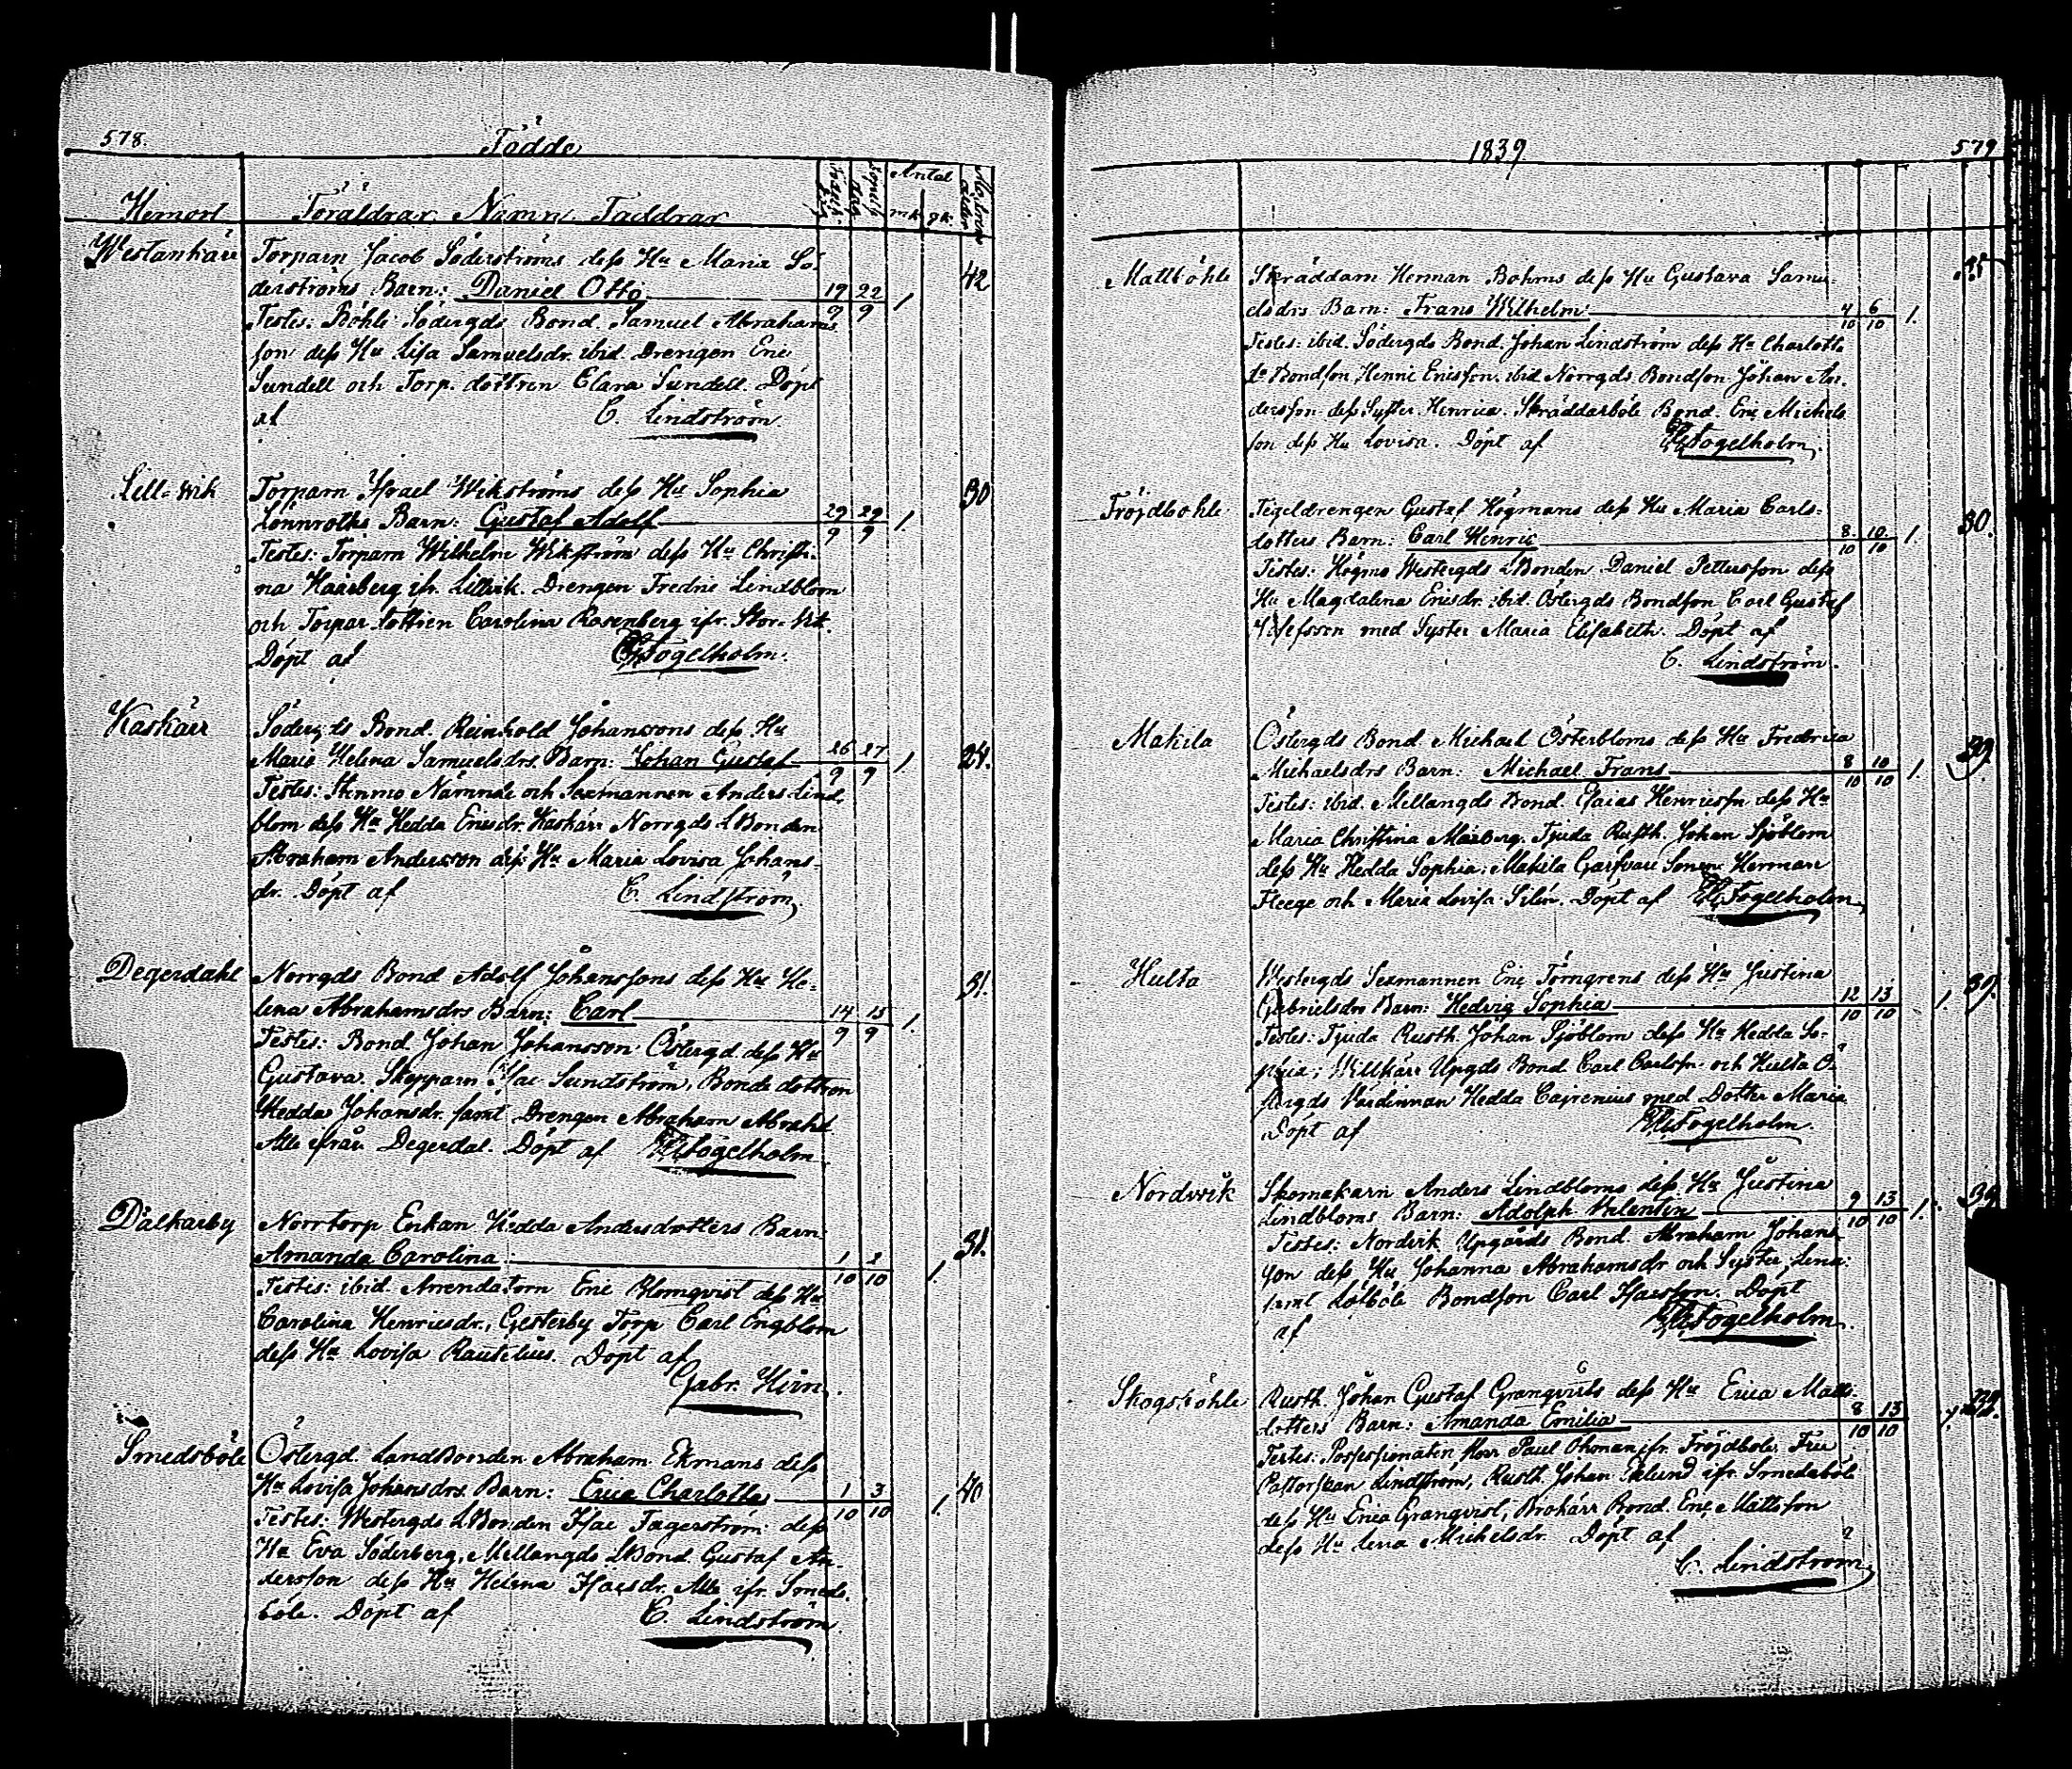 578.
Födde
Hemort
Föräldrar Namn Faddrar
Födelse dag
Döpelse dag
Antal
mk. qk.
Modrens ålder
Westankärr
Torparn Jacob Söderströms dess Hu Maria Sö-
derströms Barn: Daniel Otto 19/9 22/9 1. 42
Testes: Böhle Södergds Bond. Samuel Abrahams
son dess Hu Lisa Samuelsdr. ibid. Drengen Eric
Sundell och Torp. dottren Clara Sundell. Döpt
af C. Lindström
Lill-wik
Torparn Israel Wikströms dess Hu Sophia
Lönnroths Barn: Gustaf Adolf 29/9 29/9 1. 30
Testes: Torparn Wilhelm Wikström dess Hu Christi-
na Haarberg ifr. Lillvik. Drengen Fredric Lindblom
och Torpar dottren Carolina Rosenberg ifr. Stor-Vik.
Döpt af Fogelholm.
Kaskärr
Södergds Bond. Reinhold Johanssons dess Hu
Maria Helena Samuelsdrs. Barn: Johan Gustaf 26/9 27/9 1. 24.
Testes: Stenmo Nämnde och Sexmannen Anders Lind-
blom dess Hu Hedda Ericsdr. Kaskärr Norrgds LBonden
Abraham Andersson dess Hu Maria Lovisa Johans-
dr. Döpt af C. Lindström.
Degerdahl
Norrgds Bond Adolf Johanssons dess Hu He-
lena Abrahamsdrs Barn: Carl 14/9 15/9 1. 31.
Testes: Bond. Johan Johansson Östergd. dess Hu
Gustava. Skepparn Isac Sundström, Bonde dottren
Hedda Johansdr. samt Drengen Abraham Abrahs
Alle ifrån Degerdal. Döpt af Fogelholm
Dalkarby
Norrtorp Enkan Hedda Andersdotters Barn
Amanda Carolina 1/10 2/10 1. 31.
Testes: ibid. Arrendatorn Eric Blomqvist dess Hu
Carolina Henricsdr., Gesterby Torp Carl Engblom
dess Hu Lovisa Rautelius. Döpt af
Gabr. Hirn.
Smedsböle
Östergd. LandBonden Abraham Ekmans dess
Hu Lovisa Johansdrs. Barn: Erica Charlotta 1/10 3/10 1. 40
Testes: Westergds LBonden Isac Fagerström dess
Hu Eva Söderberg, Mellangds LBond. Gustaf An-
dersson dess Hu Helena Isacsdr. Alle ifr. Smeds-
böle. Döpt af C. Lindström
1839
579
Mattböhle
Skräddarn Herman Böhms dess Hu Gustava Samu-
elsdrs. Barn: Frans Wilhelm 4/10 6/10 1.
Testes: ibid. Södergds Bond. Johan Lindström dess Hu Charlotta
Bondson Henric Ericsson. ibid Norrgds Bondson Johan An-
dersson dess Syster Henrica. Skräddarböle Bond. Eric Michels
son dess Hu Lovisa. Döpt af Fogelholm.
Fröjdböhle
Tegeldrengen Gustaf Högmans dess Hu Maria Carls-
dotters Barn: Carl Henric 8/10 10/10 1. 30.
Testes: Högmo Westergds LBonden Daniel Pettersson dess
Hu Magdalena Ericsdr. ibid. Östergds Bondson Carl Gustaf
med Syster Maria Elisabeth. Döpt af
C. Lindström.
Makila
Östergds Bond Michael Österbloms dess Hu Fredrica
Michaelsdrs Barn: Michael Frans 8/10 10/10 1. 39.
Testes: ibid. Mellangds Bond. Esaias Henricssn. dess Hu
Maria Christina Marberg. Tjuda Rusth. Johan Sjöblom
dess Hu Hedda Sophia: Makila Garfvari Sonen Herman
Fleege och Maria Lovisa Silén. Döpt af Fogelholm
Hulta
Westergds Sexmannen Eric Törngrens dess Hu Justina
Gabrielsdrs Barn: Hedvig Sophia 12/10 13/10 1. 39.
Testes: Tjuda Rusth. Johan Sjöblom dess Hu Hedda So-
phia; Willkärr Upgds Bond Carl Carlssn och Hulta Ö-
stergds Värdinnan Hedda Cajrenius med Dotter Maria
Döpt af Fogelholm.
Nordwik
Skomakarn Anders Lindbloms dess Hu Justina
Lindbloms Barn: Adolph Valentin 9/10 13/10 1. 39.
Testes: Nordvik Upgårds Bond. Abraham Johans-
son dess Hu Johanna Abrahamsdr och Syster Lena:
samt Lötböle Bondson Carl Isacsson. Döpt
af Fogelholm.
Skogsböhle
Rusth. Johan Gustaf Granqvists dess Hu Erica Matts-
dotters Barn: Amanda Emilia 8/10 13/10
Testes: Possessionaten Herr Paul Öhman ifr. Fröjdbole, Fru
Pastorskan Lindström, Rusth. Johan Eklund ifr. Smedsböle
dess Hu Erica Granqvist, Brokärr Bond. Eric Mattsson
dess Hu Lena Michelsdr. Döpt af
C. Lindström